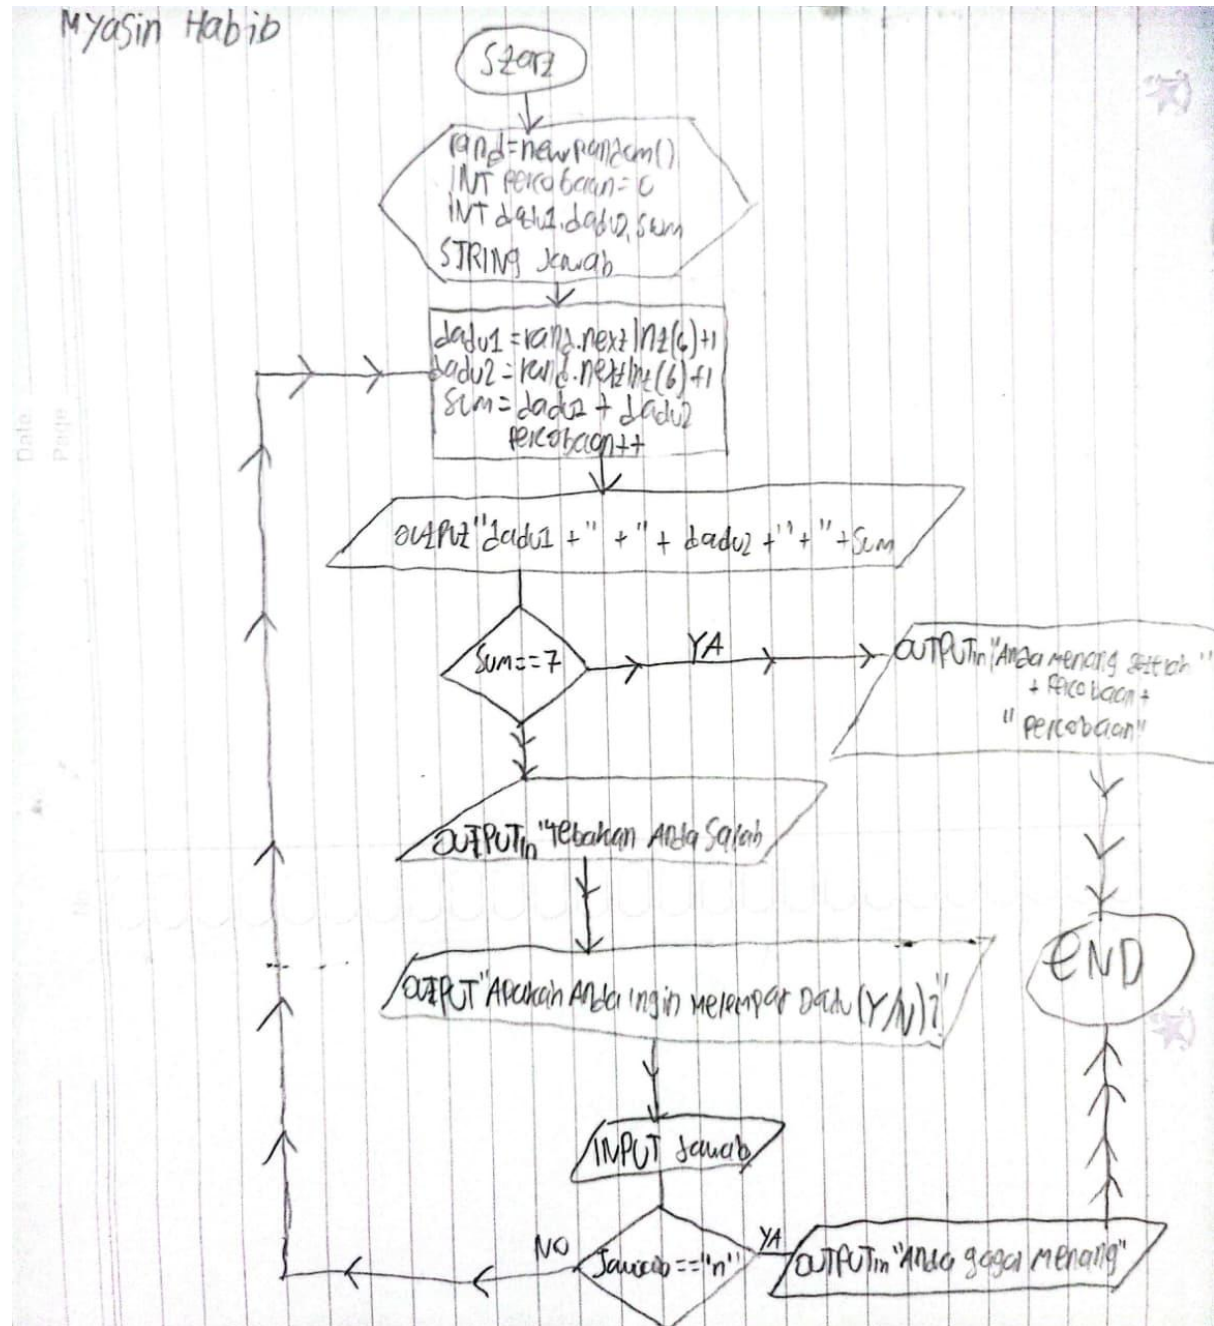 M Yasin Habib
Start
rand=new random()
INT percobaan=0
INT dadu1, dadu2, sum
STRING Jawab
dadu1=rand.nextInt(6)+1
dadu2=rand.nextInt(6)+1
Sum=dadu1 + dadu2
percobaan++
OUTPUT "dadu1 + " + " + dadu2 + " + " + Sum
Sum==7
YA
OUTPUTln "Anda menang setelah "
+ percobaan +
" percobaan"
OUTPUTln "Tebakan Anda Salah
END
OUTPUT "Apakah Anda ingin melempar Dadu (Y/N)?"
INPUT Jawab
NO
Jawab=="n"
YA
OUTPUTln "Anda gagal menang"
Date
Page
No